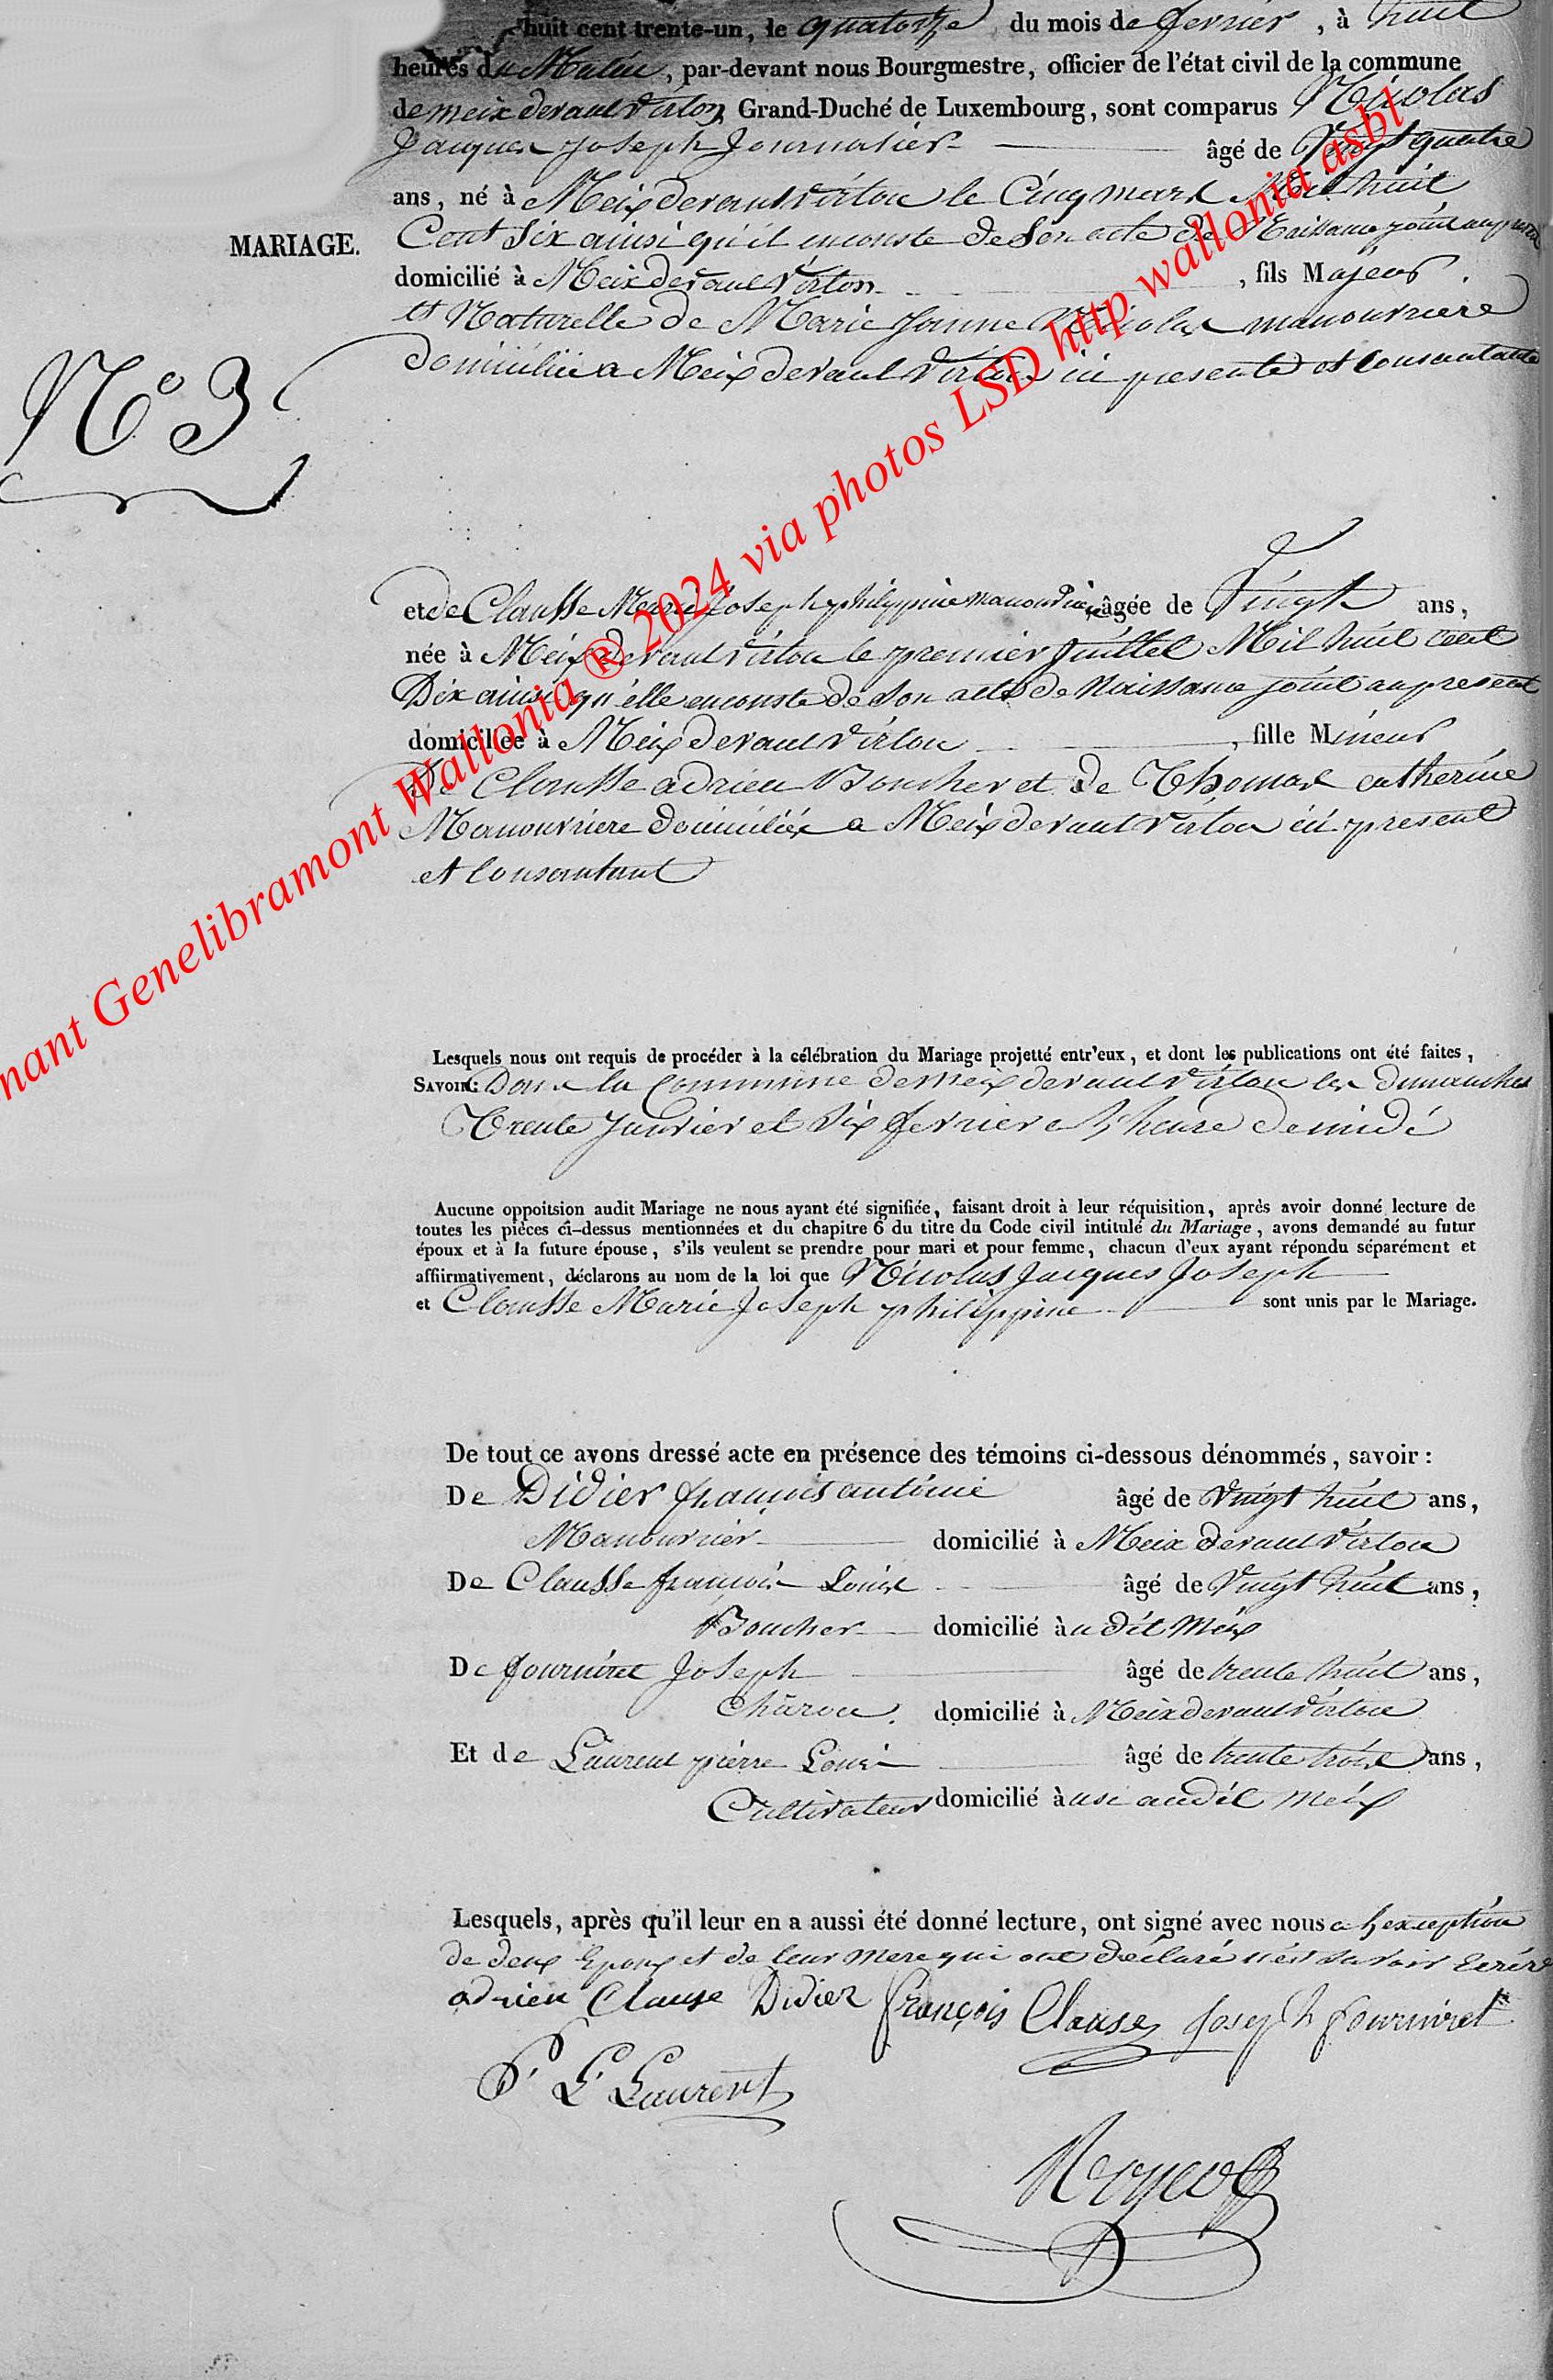 huit cent trente-un, le quatorze du mois de fevrier, à huit
heures du Matin, par-devant nous Bourgmestre, officier de l'état civil de la commune
de meix devant Virton, Grand-Duché de Luxembourg, sont comparus Nicolas
Jacques Joseph Journalier âgé de Vingt quatre
ans, né à Meix devant virton le Cinq mars Mil huit
Cent Six ainsi qu'il enconste de Son acte de Naissance joint au present
MARIAGE.
domicilié à Meix devant Virton, fils Majeur
et Naturelle de Marie Jeanne Nicolas manouvriere
domiciliée a Meix devant Virton ici presente et Consentante
N° 3
et de Clausse Marie Joseph philippine manouvriere âgée de Vingt ans,
née à Meix devant virton le premier Juillet Mil huit cent
Dix ainsi qu'elle enconste de Son acte de Naissance joint au present
domiciliée à Meix devant Virton, fille Mineur
De Clausse adrien Boucher et de Thomas catherine
Manouvriere domiciliés a Meix devant virton ici present
et Consentant
Lesquels nous ont requis de procéder à la célébration du Mariage projetté entr'eux, et dont les publications ont été faites,
SAVOIR: Dans la Commune de meix devant virton les dimanches
Trente Janvier et Six fevrier a L'heure de midi
Aucune oppoitsion audit Mariage ne nous ayant été signifiée, faisant droit à leur réquisition, après avoir donné lecture de
toutes les pièces ci-dessus mentionnées et du chapitre 6 du titre du Code civil intitulé du Mariage, avons demandé au futur
époux et à la future épouse, s'ils veulent se prendre pour mari et pour femme, chacun d'eux ayant répondu séparément et
affirmativement, déclarons au nom de la loi que Nicolas Jacques Joseph
et Clausse Marie Joseph philippine sont unis par le Mariage.
De tout ce avons dressé acte en présence des témoins ci-dessous dénommés, savoir:
De Didier françois antoine âgé de Vingt huit ans,
Manouvrier domicilié à Meix devant Virton
De Clausse françois Louis âgé de Vingt huit ans,
Boucher domicilié à u dit Meix
De fourniret Joseph âgé de trente huit ans,
Charon domicilié à Meix devant Virton
Et de Laurent pierre Louis âgé de trente trois ans,
Cultivateur domicilié à usi audit Meix
Lesquels, après qu'il leur en a aussi été donné lecture, ont signé avec nous a L'exception
de deux Epoux et de leur mere qui ont déclaré
adrien Clause Didier françois Clause Joseph fourniret
P L Laurent
nant Genelibramont Wallonia ® 2024 via photos LSD http wallonia asbl